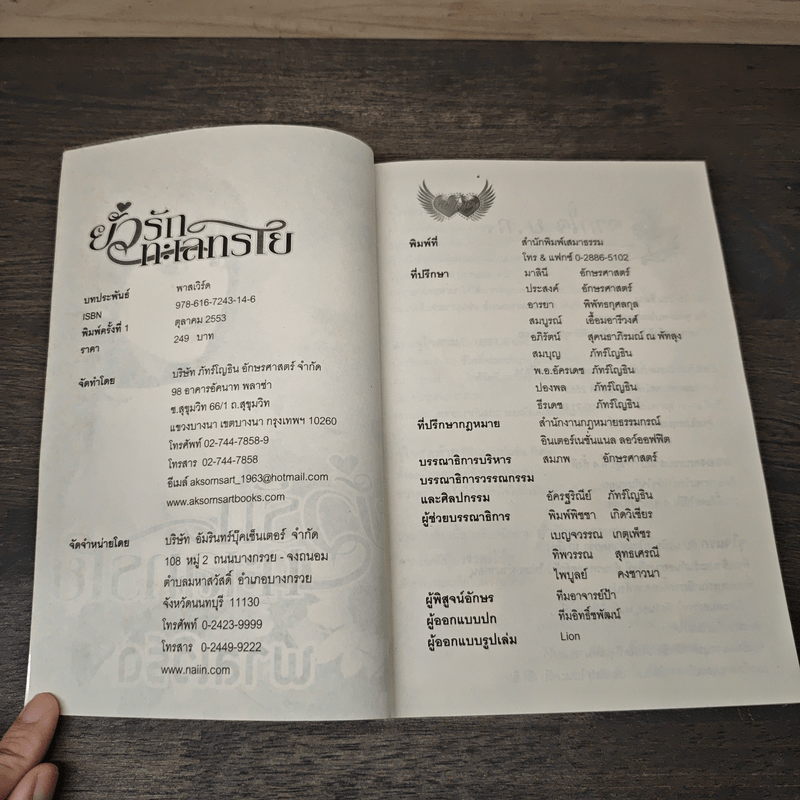 ยั่วรัก
ทะเลทราย
บทประพันธ์ พาสเวิร์ด
ISBN 978-616-7243-14-6
พิมพ์ครั้งที่ 1 ตุลาคม 2553
ราคา 249 บาท
จัดทำโดย บริษัท ภัทร์โญธิน อักษรศาสตร์ จำกัด
98 อาคารอัคนาท พลาซ่า
ซ.สุขุมวิท 66/1 ถ.สุขุมวิท
แขวงบางนา เขตบางนา กรุงเทพฯ 10260
โทรศัพท์ 02-744-7858-9
โทรสาร 02-744-7858
อีเมล์ aksornsart_1963@hotmail.com
www.aksornsartbooks.com
จัดจำหน่ายโดย บริษัท อัมรินทร์บุ๊คเซ็นเตอร์ จำกัด
108 หมู่ 2 ถนนบางกรวย - จงถนอม
ตำบลมหาสวัสดิ์ อำเภอบางกรวย
จังหวัดนนทบุรี 11130
โทรศัพท์ 0-2423-9999
โทรสาร 0-2449-9222
www.naiin.com
พิมพ์ที่ สำนักพิมพ์เสมาธรรม
โทร & แฟกซ์ 0-2886-5102
ที่ปรึกษา มาลินี อักษรศาสตร์
ประสงค์ อักษรศาสตร์
อารยา พิพัทธกุศลกุล
สมบูรณ์ เอื้อมอารีวงศ์
อภิรัตน์ สุคนธาภิรมณ์ ณ พัทลุง
สมบุญ ภัทร์โญธิน
พ.อ.อัครเดช ภัทร์โญธิน
ปองพล ภัทร์โญธิน
ธีรเดช ภัทร์โญธิน
ที่ปรึกษากฎหมาย สำนักงานกฎหมายธรรมกรณ์
อินเตอร์เนชั่นแนล ลอว์ออฟฟิต
บรรณาธิการบริหาร สมภพ อักษรศาสตร์
บรรณาธิการวรรณกรรม
และศิลปกรรม อัครฐริณีย์ ภัทร์โญธิน
ผู้ช่วยบรรณาธิการ พิมพ์พิชชา เกิดวิเชียร
เบญจวรรณ เกตุเพ็ชร
ทิพวรรณ สุทธเศรณี
ไพบูลย์ คงชาวนา
ผู้พิสูจน์อักษร ทีมอาจารย์ป้า
ผู้ออกแบบปก ทีมอิทธิ์ชพัฒน์
ผู้ออกแบบรูปเล่ม Lion